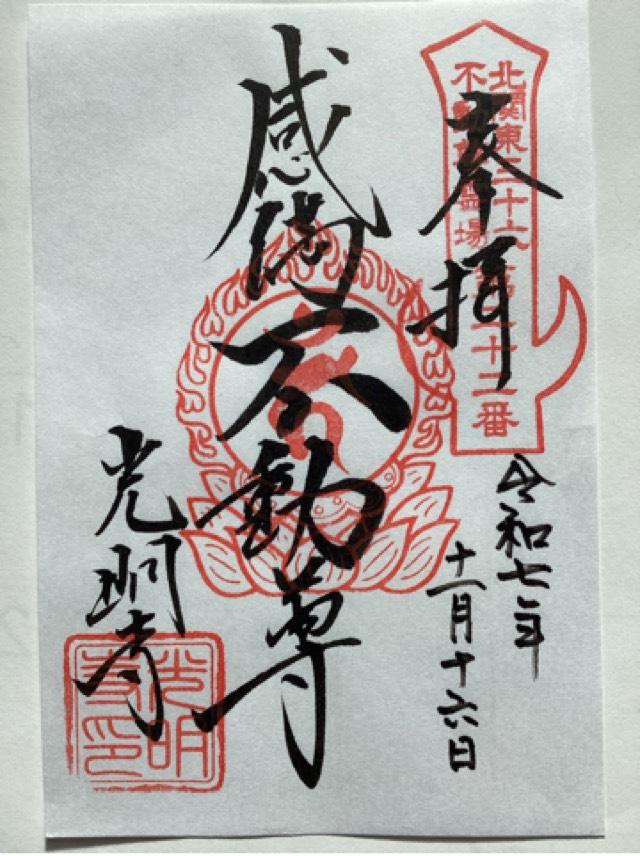 奉拝
北関東三十六
不動尊霊場
第二十二番
感満不動尊
令和七年
十一月十六日
光明寺
光明
寺印